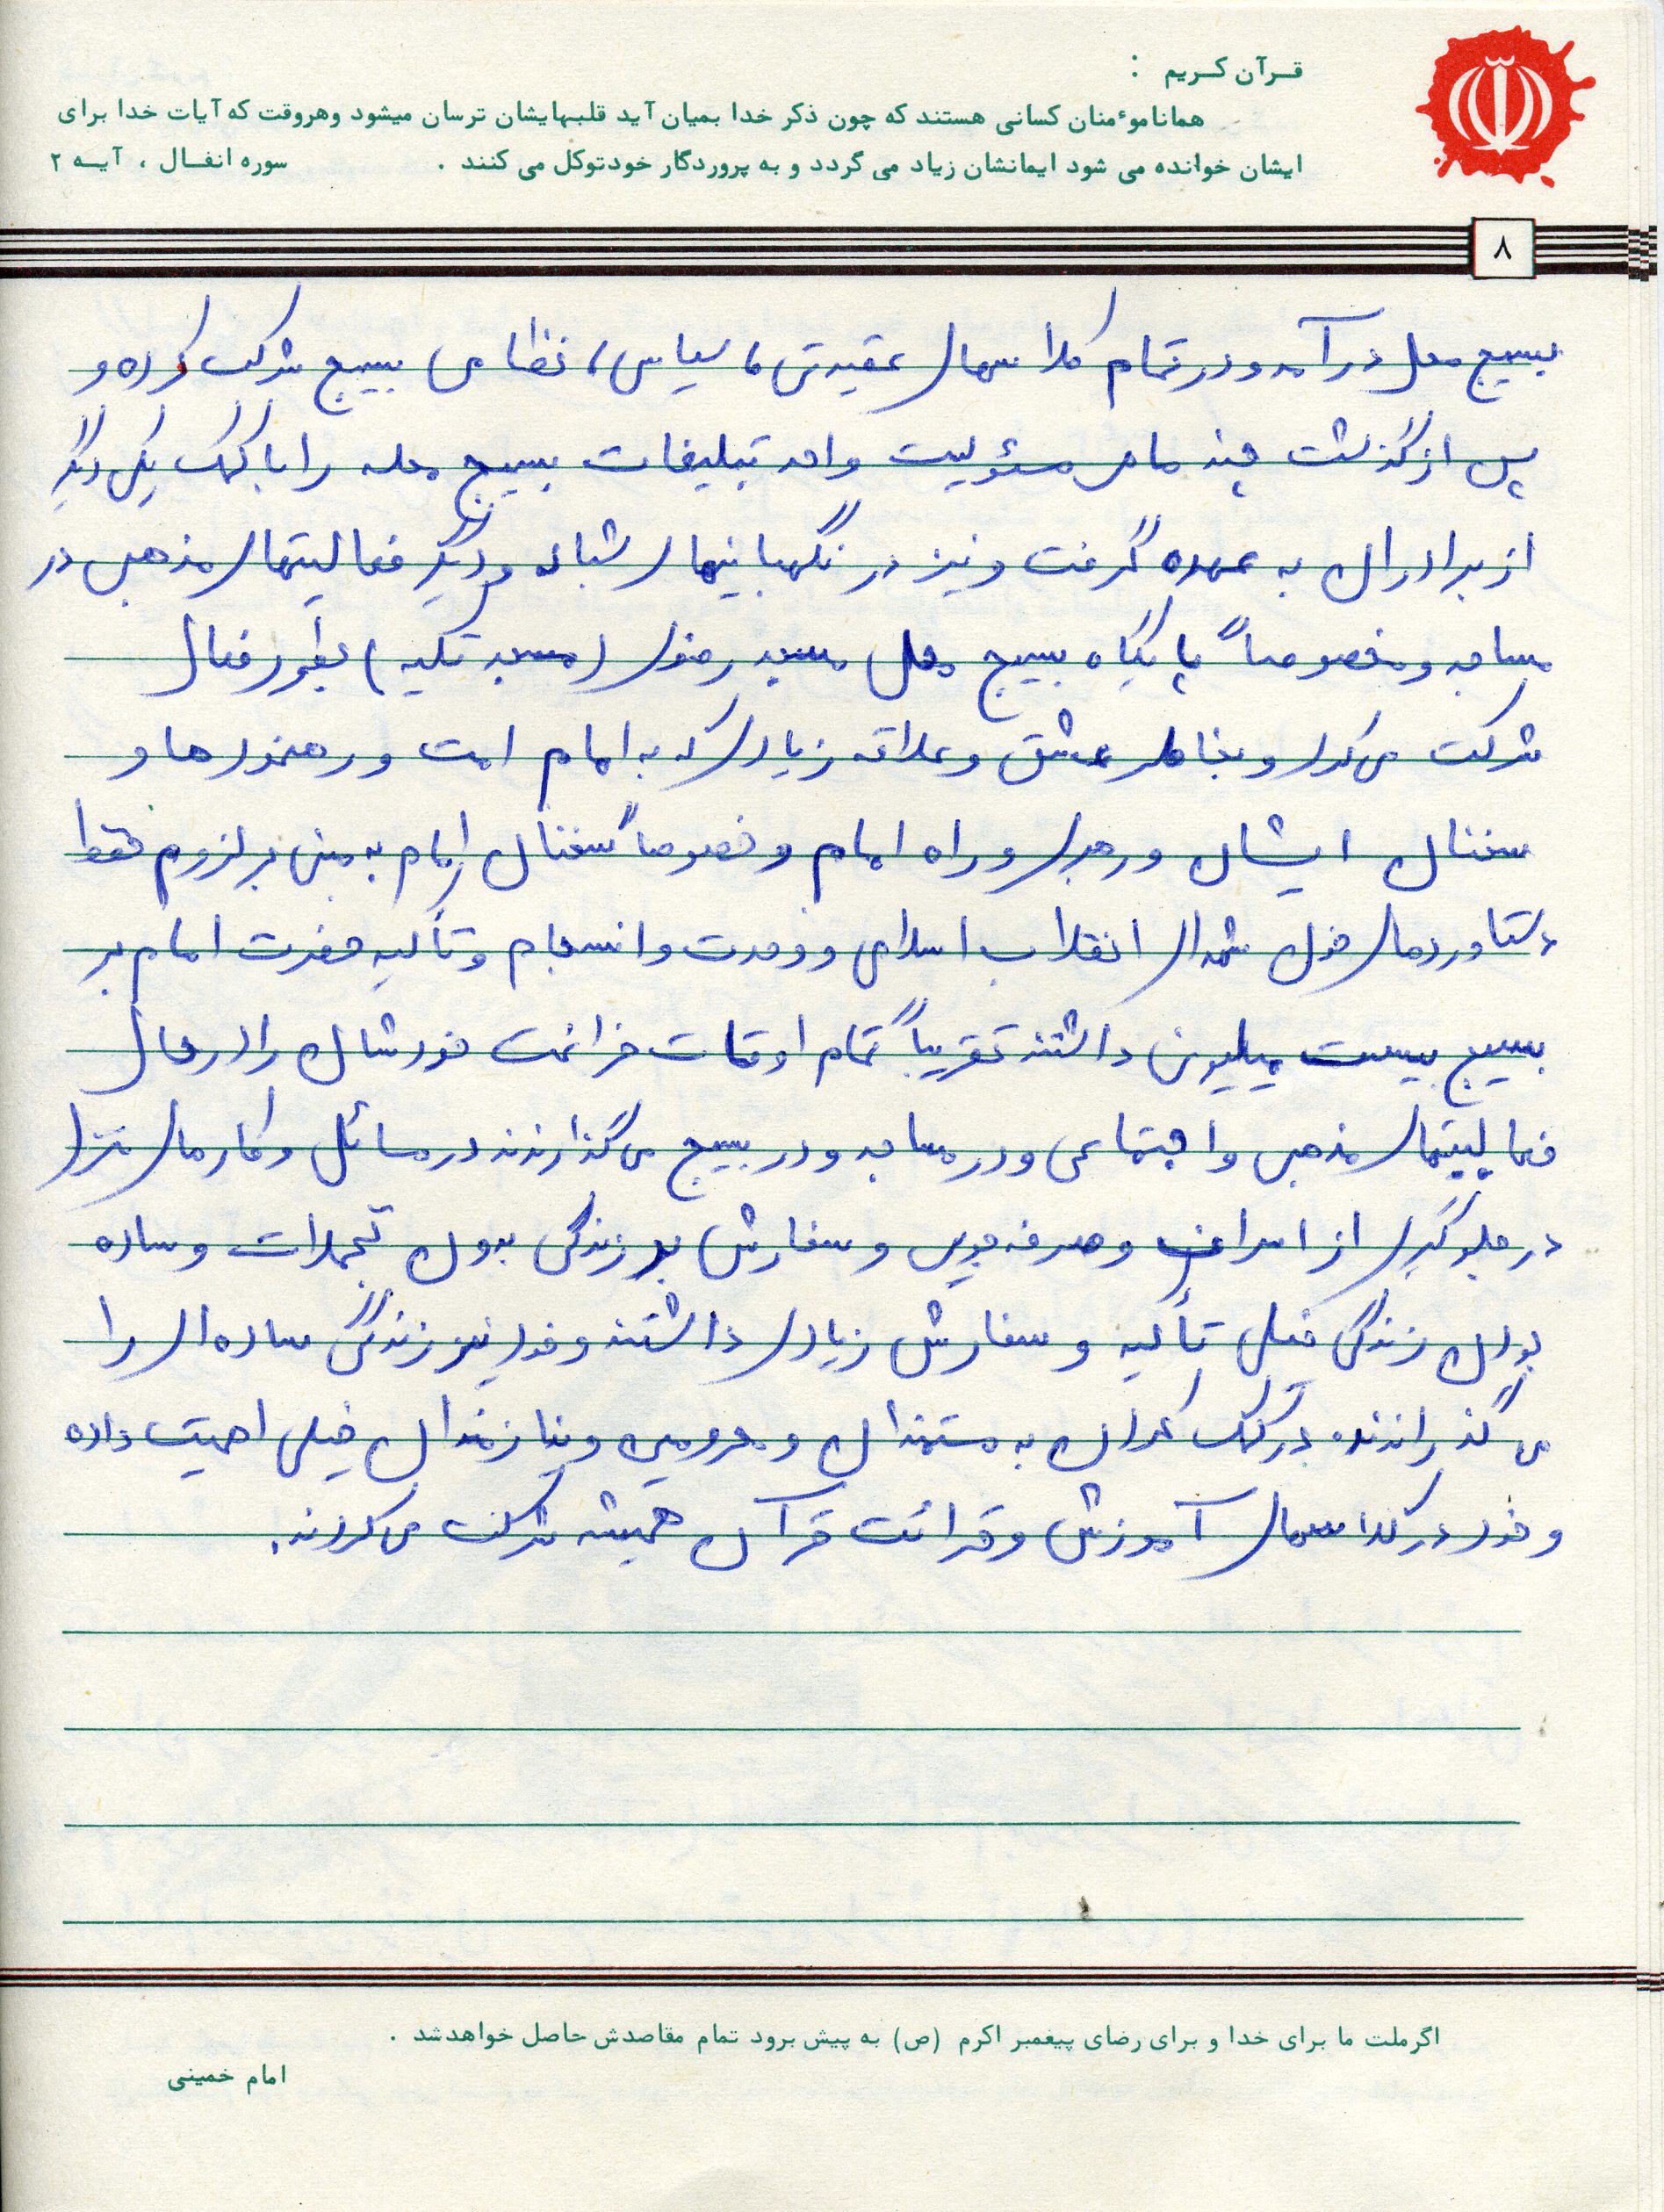 قرآن کریم :
هماناموٴمنان کسانی هستند که چون ذکر خدا بمیان آید قلبهایشان ترسان میشود وهروقت که آیات خدا برای
ایشان خوانده می شود ایمانشان زیاد می گردد و به پروردگار خودتوکل می کنند .
سوره انفال ، آیه ۲
۸
بسیج محل درآمد و در تمام کلاسهای عقیدتی، سیاسی، نظامی بسیج شرکت کرده و
پس از گذشت چند ماه مسئولیت واحد تبلیغات بسیج محله را با کمک یکی دیگر
از برادران به عهده گرفت و نیز در نگهبانیهای شبانه و دیگر فعالیتهای مذهبی در
مساجد و مخصوصاً پایگاه بسیج محل مسجد رضوی (مسجد تکیه) بطور فعال
شرکت می‌کرد و بخاطر عشق و علاقه زیادی که به امام امت و رهنمودها و
سخنان ایشان و رهبری و راه امام و خصوصاً سخنان امام به مبنی بر لزوم حفظ
دستاوردهای خون شهدای انقلاب اسلامی و وحدت و انسجام و تأکید حضرت امام بر
بسیج بیست میلیونی داشتند تقریباً تمام اوقات فراغت خودشان را در حال
فعالیتهای مذهبی و اجتماعی و در مساجد و در بسیج می‌گذارندند در مسائل و کارهای منزل
در جلوگیری از اسراف و صرفه‌جویی و سفارش بر زندگی بدون تجملات و ساده
بودن زندگی خیلی تأکید و سفارش زیادی داشتند و خود نیز زندگی ساده‌ای را
می‌گذراندند. در کمک کردن به مستمندان و محرومین و نیازمندان خیلی اهمیت داده
و خود در کلاسهای آموزش و قرائت قرآن همیشه شرکت می‌کردند.
اگرملت ما برای خدا و برای رضای پیغمبر اکرم (ص) به پیش برود تمام مقاصدش حاصل خواهدشد .
امام خمینی